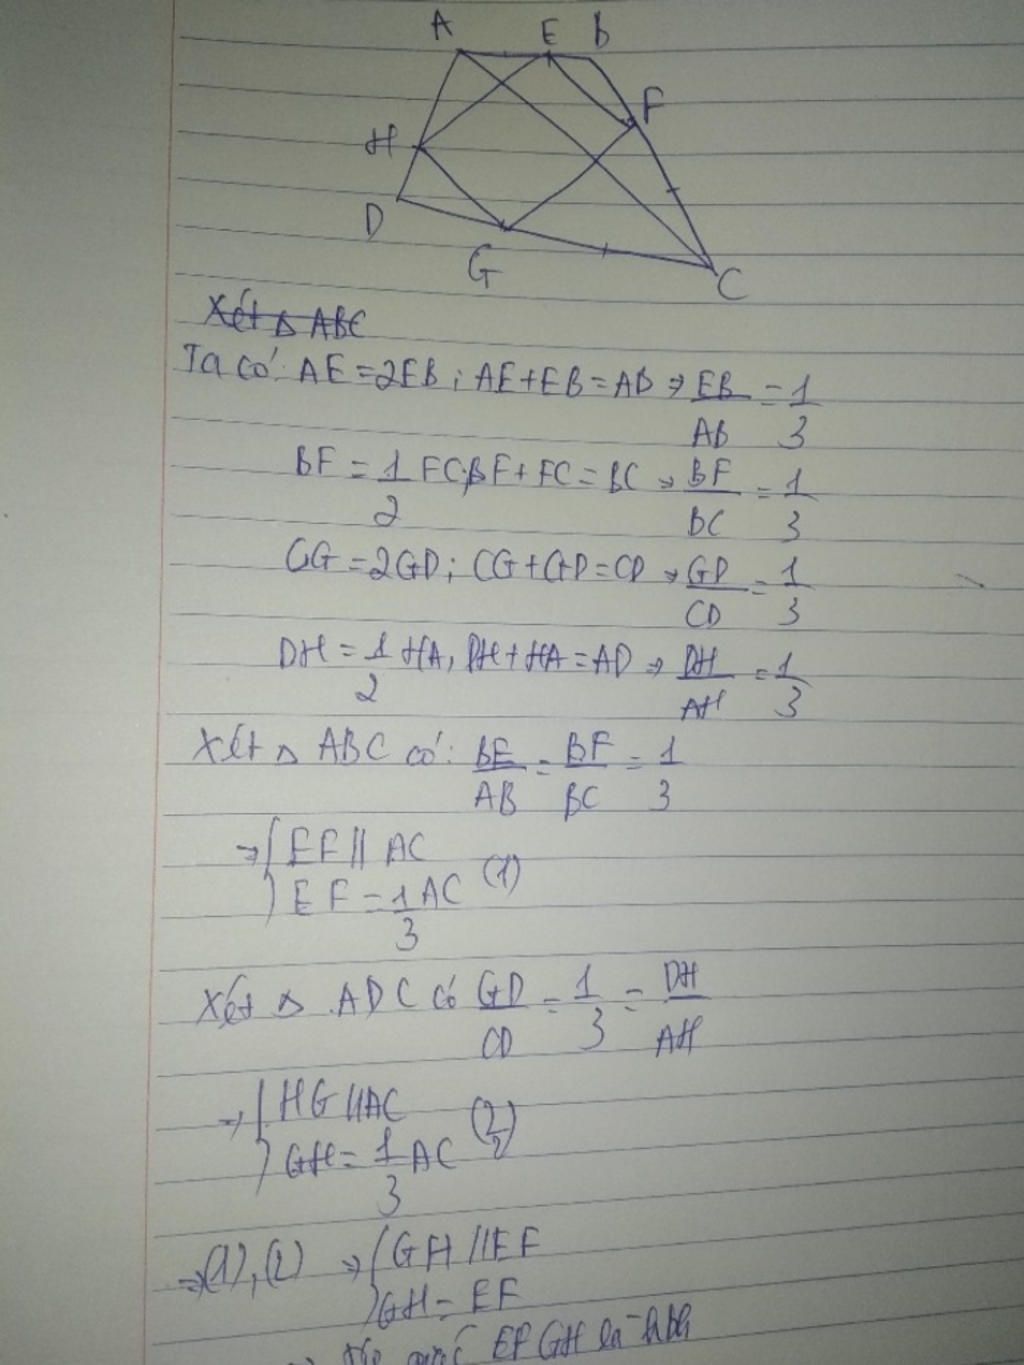 A E B
F
H
D
G
C
Xét Δ ABC
Ta có: AE = 2EB ; AE + EB = AB ⇒ EB/AB = 1/3
BF = 1/2 FC; BF + FC = BC ⇒ BF/BC = 1/3
CG = 2GD ; CG + GD = CD ⇒ GD/CD = 1/3
DH = 1/2 HA, DH + HA = AD ⇒ DH/AH = 1/3
Xét Δ ABC có: BE/AB = BF/BC = 1/3
⇒ { EF // AC
EF = 1/3 AC (1)
Xét Δ ADC có GD/CD = 1/3 = DH/AH
⇒ { HG // AC
GH = 1/3 AC (2)
⇒ (1), (2) ⇒ { GH // EF
GH = EF
giác EFGH là hbh